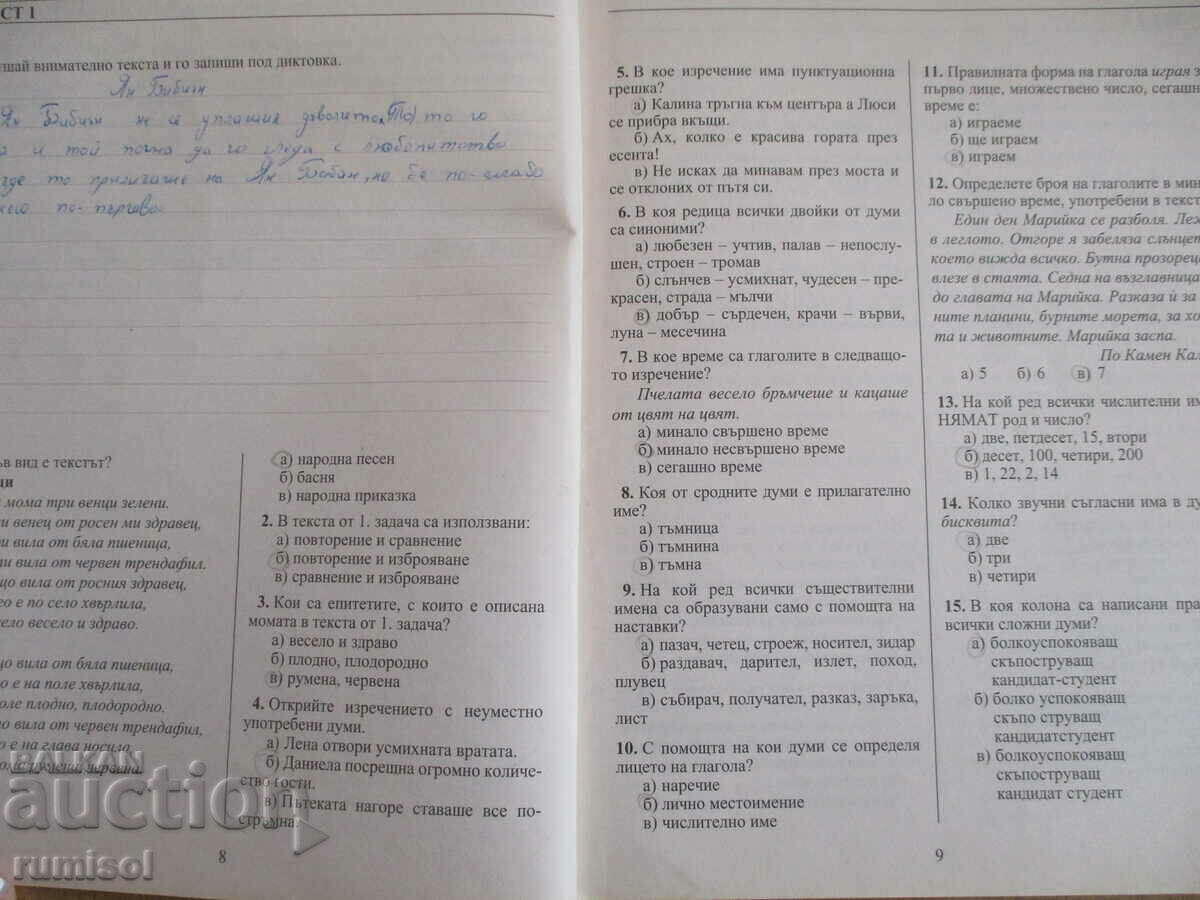 СТ 1
ушай внимателно текста и го запиши под диктовка.
Ян Бибиян
Ян Бибиян не се уплаши дяволито. То го
а и той почна да го гледа с любопитство
где то приличаше на Ян Бибиян, но бе по-слабо
него по-пъргаво
ъв вид е текстът?
ци
мома три венци зелени.
и венец от росен ми здравец,
ри вила от бяла пшеница,
ти вила от червен трендафил.
що вила от росния здравец,
го е по село хвърлила,
село весело и здраво.
що вила от бяла пшеница,
о е на поле хвърлила,
поле плодно, плодородно.
о вила от червен трендафил,
о е на глава носила
румена, червена.
а) народна песен
б) басня
в) народна приказка
2. В текста от 1. задача са използвани:
а) повторение и сравнение
б) повторение и изброяване
в) сравнение и изброяване
3. Кои са епитетите, с които е описана
момата в текста от 1. задача?
а) весело и здраво
б) плодно, плодородно
в) румена, червена
4. Открийте изречението с неуместно
употребени думи.
а) Лена отвори усмихната вратата.
б) Даниела посрещна огромно количе-
ство гости.
в) Пътеката нагоре ставаше все по-
стръмна.
8
5. В кое изречение има пунктуационна
грешка?
а) Калина тръгна към центъра а Люси
се прибра вкъщи.
б) Ах, колко е красива гората през
есента!
в) Не исках да минавам през моста и
се отклоних от пътя си.
6. В коя редица всички двойки от думи
са синоними?
а) любезен – учтив, палав – непослу-
шен, строен – тромав
б) слънчев – усмихнат, чудесен – пре-
красен, страда – мълчи
в) добър – сърдечен, крачи – върви,
луна – месечина
7. В кое време са глаголите в следващо-
то изречение?
Пчелата весело бръмчеше и кацаше
от цвят на цвят.
а) минало свършено време
б) минало несвършено време
в) сегашно време
8. Коя от сродните думи е прилагателно
име?
а) тъмница
б) тъмнина
в) тъмна
9. На кой ред всички съществителни
имена са образувани само с помощта на
наставки?
а) пазач, четец, строеж, носител, зидар
б) раздавач, дарител, излет, поход,
плувец
в) събирач, получател, разказ, заръка,
лист
10. С помощта на кои думи се определя
лицето на глагола?
а) наречие
б) лично местоимение
в) числително име
9
11. Правилната форма на глагола играя з
първо лице, множествено число, сегашн
време е:
а) играеме
б) ще играем
в) играем
12. Определете броя на глаголите в мин
ло свършено време, употребени в текст
Един ден Марийка се разболя. Леж
в леглото. Отгоре я забеляза слънцет
което вижда всичко. Бутна прозореца
влезе в стаята. Седна на възглавница
до главата на Марийка. Разказа ѝ за
ните планини, бурните морета, за хо
та и животните. Марийка заспа.
По Камен Кал
а) 5 б) 6 в) 7
13. На кой ред всички числителни им
НЯМАТ род и число?
а) две, петдесет, 15, втори
б) десет, 100, четири, 200
в) 1, 22, 2, 14
14. Колко звучни съгласни има в ду
бисквита?
а) две
б) три
в) четири
15. В коя колона са написани пра
всички сложни думи?
а) болкоуспокояващ
скъпоструващ
кандидат-студент
б) болко успокояващ
скъпо струващ
кандидатстудент
в) болкоуспокояващ
скъпоструващ
кандидат студент
БАЛКАН
auction
rumisol